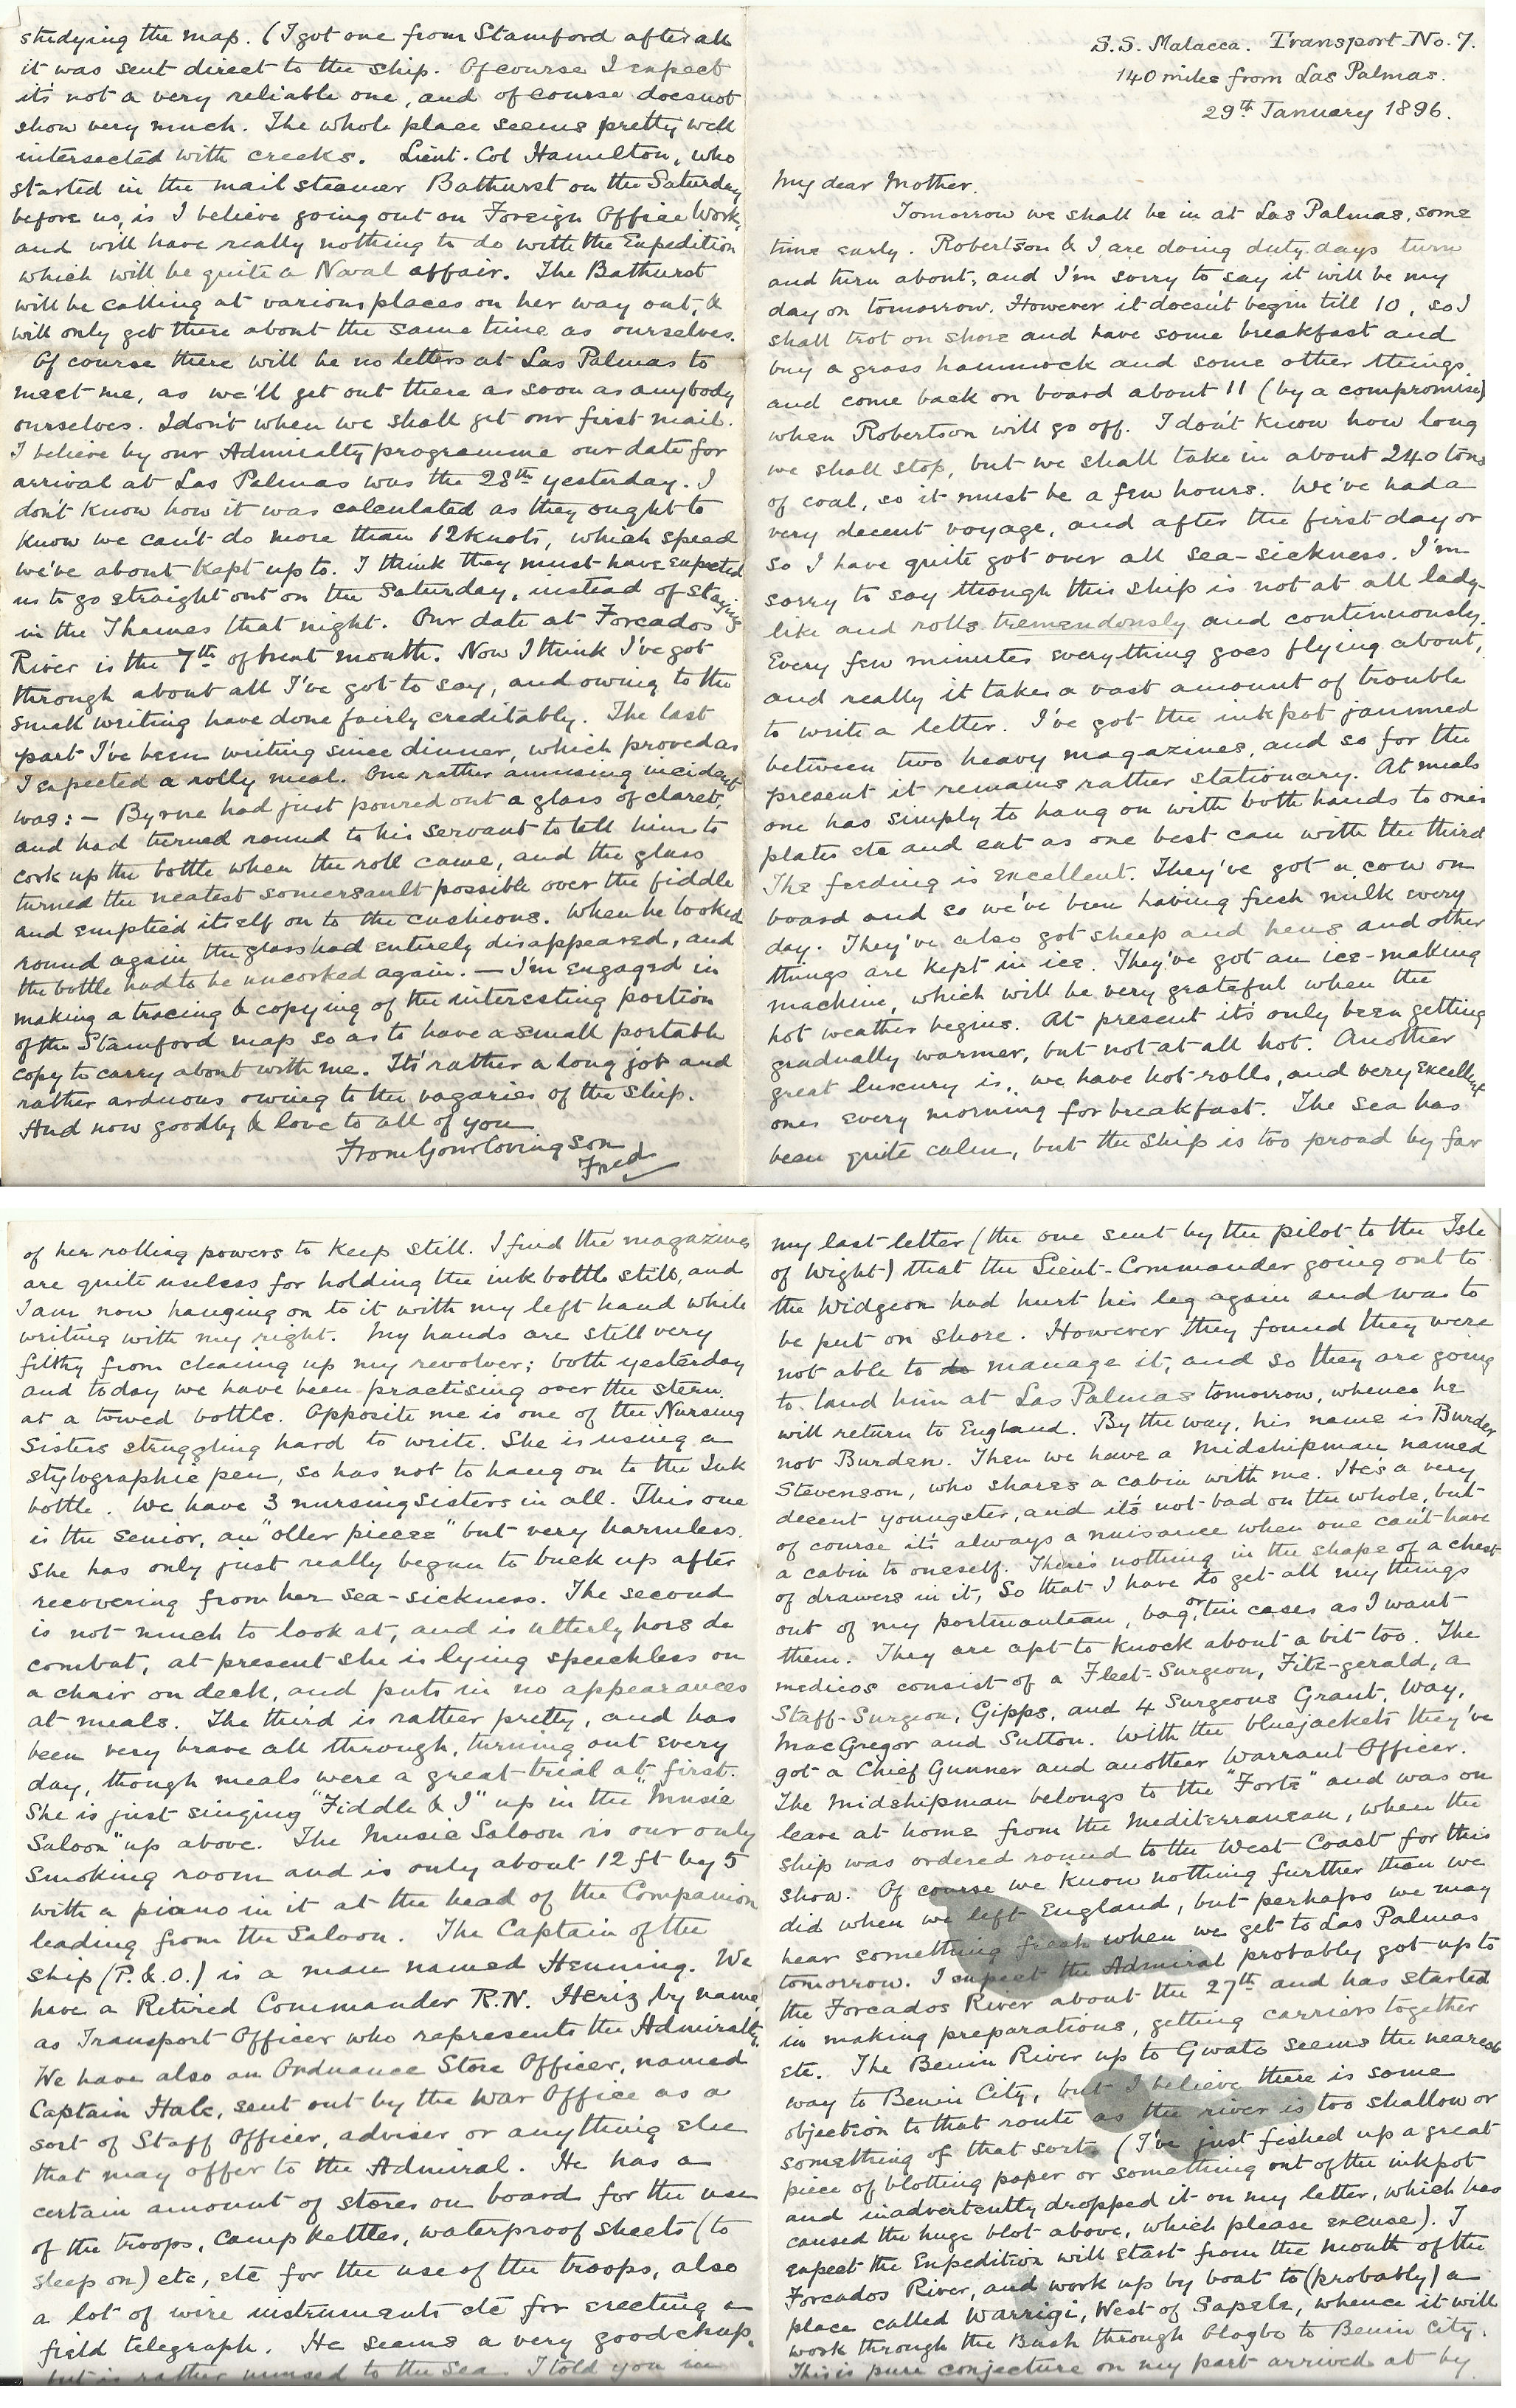 S.S. Malacca. Transport No. 7.
140 miles from Las Palmas.
29th January 1896.
My dear Mother.
Tomorrow we shall be in at Las Palmas, some
time early. Robertson & I are doing duty days turn
and turn about, and I'm sorry to say it will be my
day on tomorrow. However it doesnt begin till 10, so I
shall trot on shore and have some breakfast and
buy a grass hammock and some other things
and come back on board about 11 (by a compromise)
when Robertson will go off. I don't know how long
we shall stop, but we shall take in about 240 tons
of coal, so it must be a few hours. We've had a
very decent voyage, and after the first day or
so I have quite got over all sea-sickness. I'm
sorry to say though this ship is not at all lady-
like and rolls tremendously and continuously.
Every few minutes everything goes flying about,
and really it takes a vast amount of trouble
to write a letter. I've got the inkpot jammed
between two heavy magazines, and so for the
present it remains rather stationary. At meals
one has simply to hang on with both hands to ones
plates etc and eat as one best can with the third
The feeding is excellent. They've got a cow on
board and so we've been having fresh milk every
day. They've also got sheep and hens and other
things are kept in ice. They've got an ice-making
machine, which will be very grateful when the
hot weather begins. At present its only been getting
gradually warmer, but not at all hot. Another
great luxury is, we have hot rolls, and very excellent
ones every morning for breakfast. The sea has
been quite calm, but the ship is too proud by far
of her rolling powers to keep still. I find the magazines
are quite useless for holding the ink bottle still, and
I am now hanging on to it with my left hand while
writing with my right. My hands are still very
filthy from cleaning up my revolver; both yesterday
and today we have been practising over the stern
at a towed bottle. Opposite me is one of the Nursing
Sisters struggling hard to write. She is using a
stylographic pen, so has not to hang on to the Ink
bottle. We have 3 nursing sisters in all. This one
is the senior, an "oller pieece" but very harmless.
She has only just really begun to buck up after
recovering from her sea-sickness. The second
is not much to look at, and is utterly hors de
combat, at present she is lying speechless on
a chair on deck, and puts in no appearances
at meals. The third is rather pretty, and has
been very brave all through, turning out every
day, though meals were a great trial at first.
She is just singing "Fiddle & I" up in the "Music
Saloon" up above. The Music Saloon is our only
smoking room and is only about 12 ft by 5
with a piano in it at the head of the Companion
leading from the Saloon. The Captain of the
ship (P. & O.) is a man named Henning. We
have a Retired Commander R.N. Heriz by name,
as Transport Officer who represents the Admiralty.
We have also an Ordnance Store Officer, named
Captain Hale, sent out by the War Office as a
sort of Staff Officer, adviser or anything else
that may offer to the Admiral. He has a
certain amount of stores on board for the use
of the troops, camp kettles, waterproof sheets (to
sleep on) etc, etc for the use of the troops, also
a lot of wire instruments etc for erecting a
field telegraph. He seems a very good chap,
but is rather unused to the Sea. I told you in
my last letter (the one sent by the pilot to the Isle
of Wight) that the Lieut-Commander going out to
the Widgeon had hurt his leg again and was to
be put on shore. However they found they were
not able to manage it, and so they are going
to land him at Las Palmas tomorrow, whence he
will return to England. By the way, his name is Burder
not Burden. Then we have a Midshipman named
Stevenson, who shares a cabin with me. He's a very
decent youngster, and it's not bad on the whole, but
of course it's always a nuisance when one can't have
a cabin to oneself. There's nothing in the shape of a chest
of drawers in it, so that I have to get all my things
out of my portmanteau, bag, or tin cases as I want
them. They are apt to knock about a bit too. The
medicos consist of a Fleet-Surgeon, Fitz-gerald, a
Staff-Surgeon, Gipps, and 4 Surgeons Grant, Way,
MacGregor and Sutton. With the bluejackets they've
got a Chief Gunner and another Warrant Officer.
The Midshipman belongs to the "Forte" and was on
leave at home from the Mediterranean, when the
ship was ordered round to the West Coast for this
show. Of course we know nothing further than we
did when we left England, but perhaps we may
hear something fresh when we get to Las Palmas
tomorrow. I expect the Admiral probably got up to
the Forcados River about the 27th and has started
in making preparations, getting carriers together
etc. The Benin River up to Gwato seems the nearest
way to Benin City, but I believe there is some
objection to that route as the river is too shallow or
something of that sort. (I've just fished up a great
piece of blotting paper or something out of the inkpot
and inadvertently dropped it on my letter, which has
caused the huge blot above, which please excuse). I
expect the Expedition will start from the mouth of the
Forcados River, and work up by boat to (probably) a
place called Warrigi, West of Sapele, whence it will
work through the Bush through Ologbo to Benin City.
This is pure conjecture on my part arrived at by
studying the map. (I got one from Stamford after all
it was sent direct to the ship. Of course I expect
its not a very reliable one, and of course doesnot
show very much. The whole place seems pretty well
intersected with creeks. Lieut. Col Hamilton, who
started in the mail steamer Bathurst on the Saturday
before us, is I believe going out on Foreign Office Work,
and will have really nothing to do with the Expedition
which will be quite a Naval affair. The Bathurst
will be calling at various places on her way out, &
will only get there about the same time as ourselves.
Of course there will be no letters at Las Palmas to
meet me, as we'll get out there as soon as anybody
ourselves. I don't when we shall get our first mail.
I believe by our Admiralty programme our date for
arrival at Las Palmas was the 28th yesterday. I
don't know how it was calculated as they ought to
know we can't do more than 12 knots, which speed
we've about kept up to. I think they must have expected
us to go straight out on the Saturday, instead of staying
in the Thames that night. Our date at Forcados
River is the 7th of next month. Now I think I've got
through about all I've got to say, and owing to the
small writing have done fairly creditably. The last
part I've been writing since dinner, which proved as
I expected a rolly meal. One rather amusing incident
was: — Byrne had just poured out a glass of claret,
and had turned round to his servant to tell him to
cork up the bottle when the roll came, and the glass
turned the neatest somersault possible over the fiddle
and emptied itself on to the cushions. When he looked
round again the glass had entirely disappeared, and
the bottle had to be uncorked again. — I'm engaged in
making a tracing & copying of the interesting portion
of the Stamford map so as to have a small portable
copy to carry about with me. It's rather a long job and
rather arduous owing to the vagaries of the ship.
And now goodby & love to all of you
From Your loving son
Fred